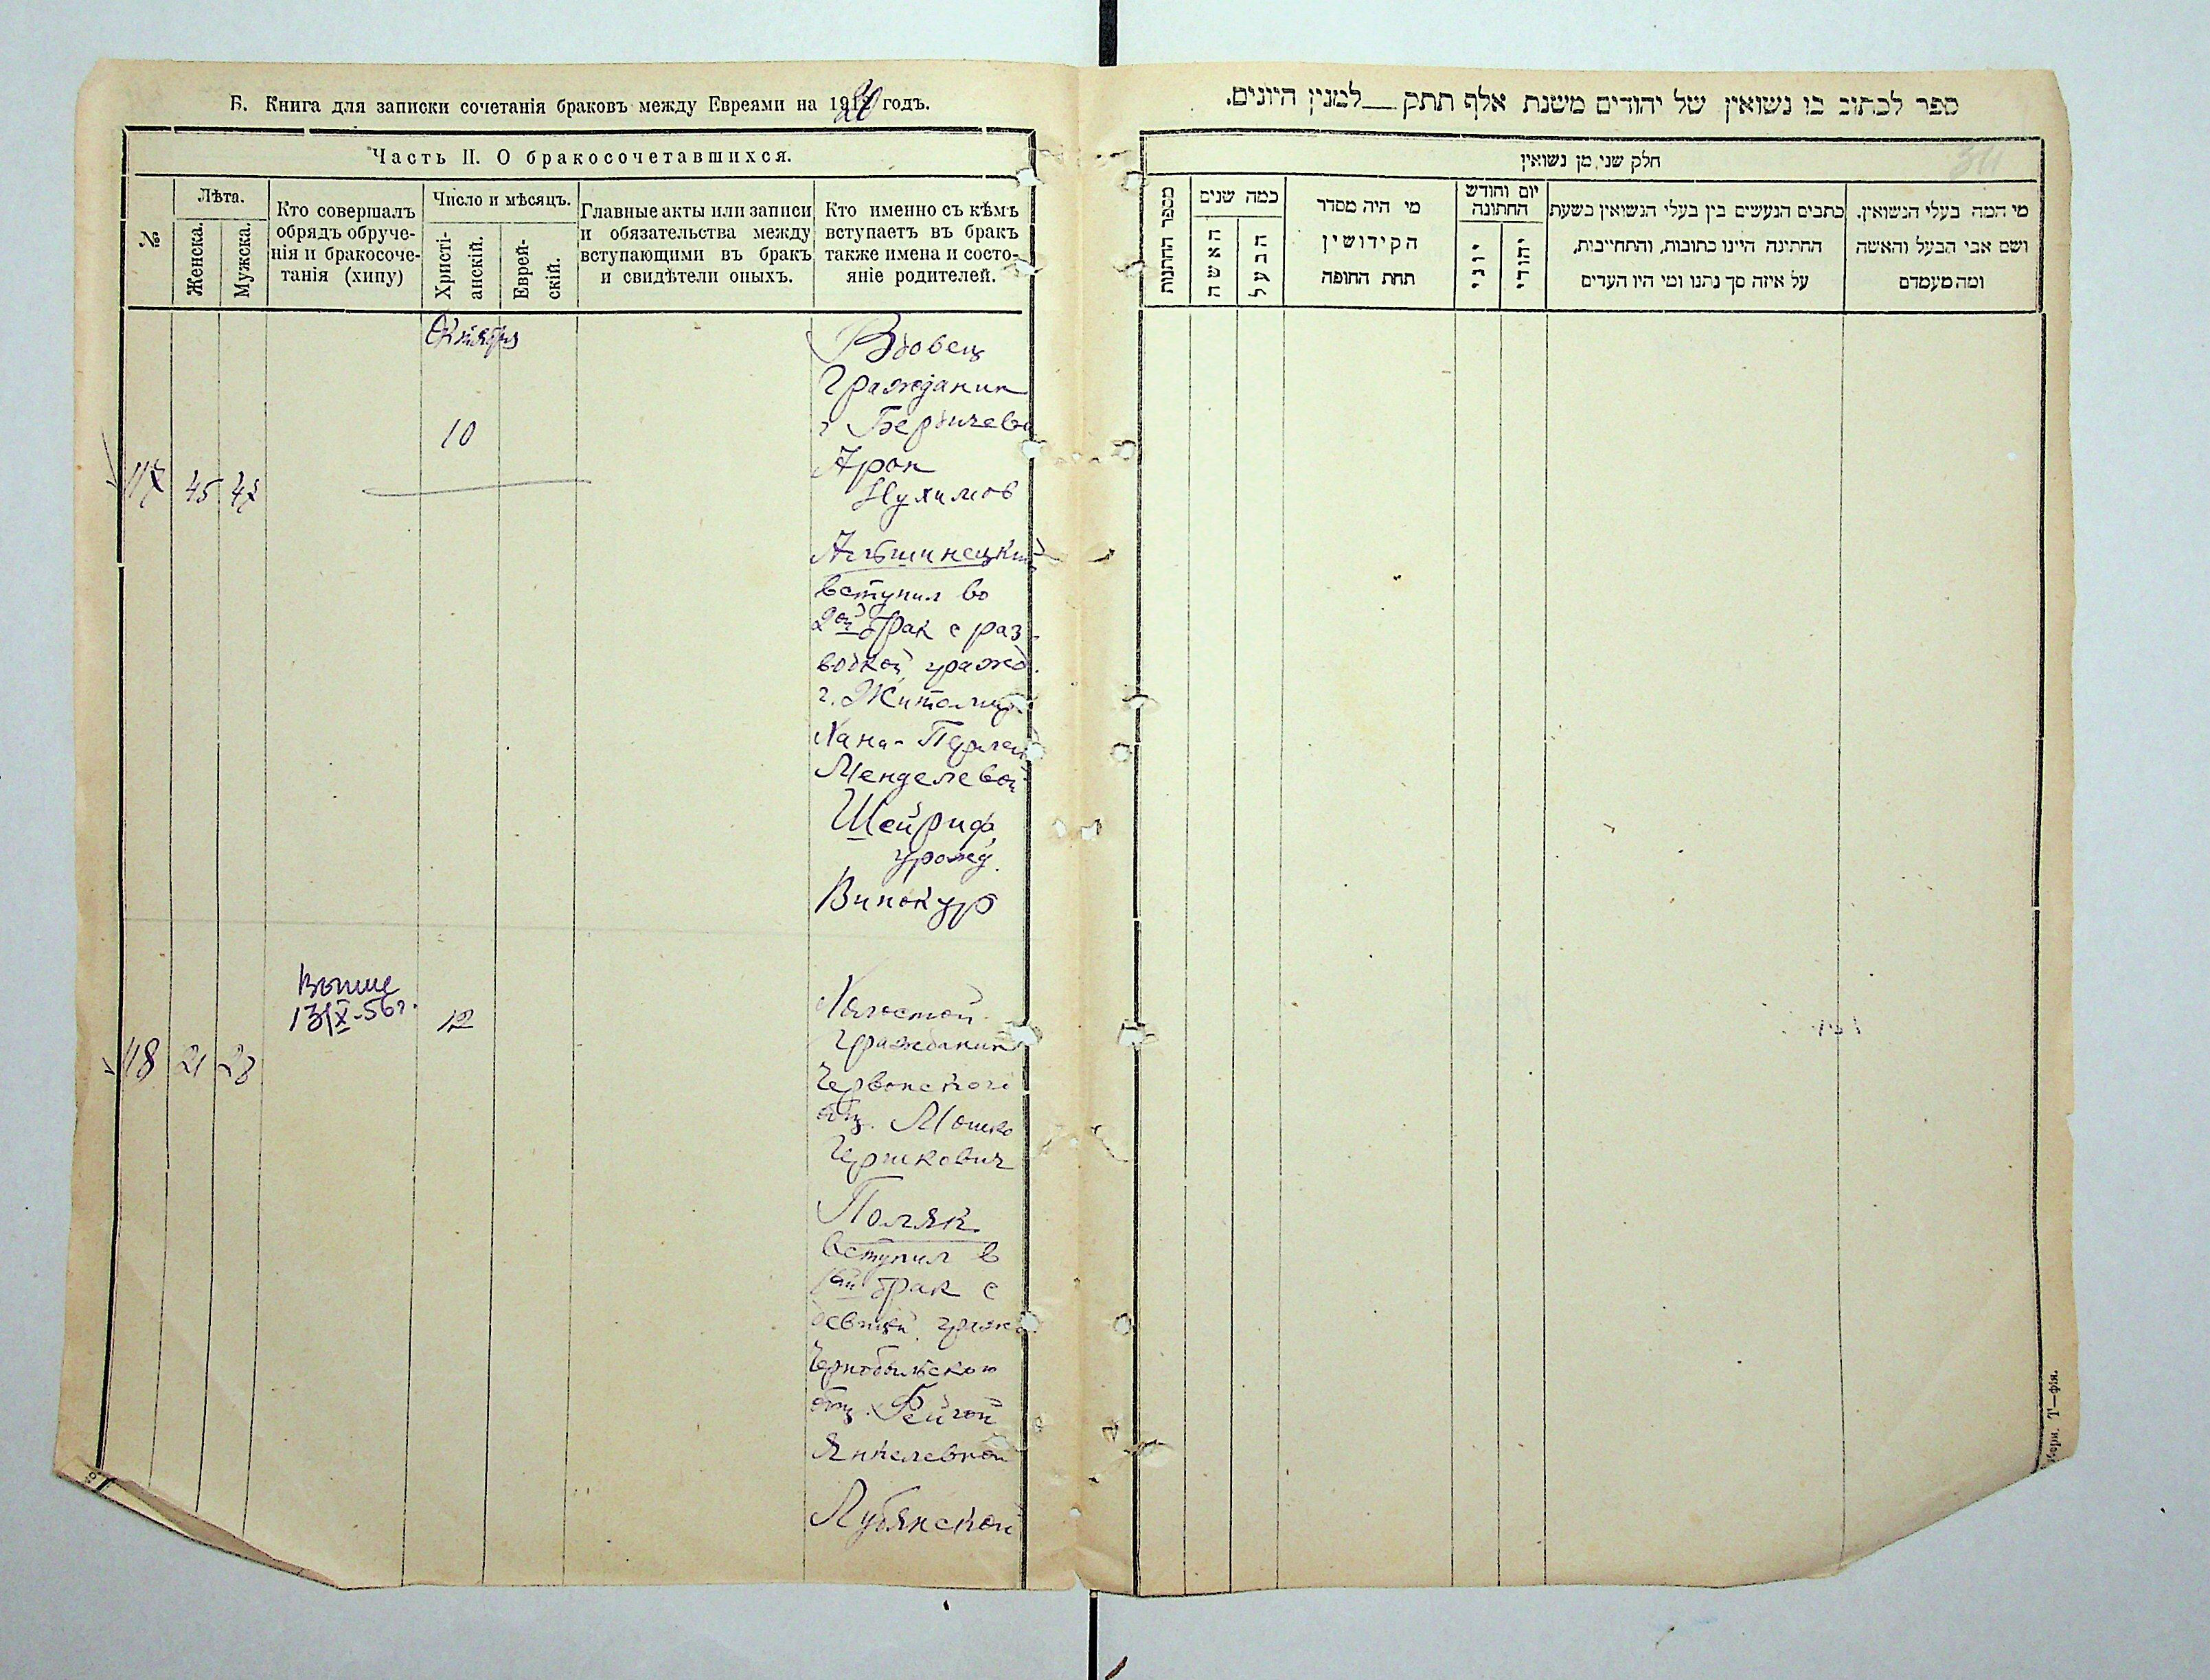 Б. Книга для записки сочетанія браковъ между Евреями на 1920 годъ.
Часть II. О бракосочетавшихся.
№
Лѣта.
Женска.
Мужска.
Кто совершалъ
обрядъ обруче-
нія и бракосоче-
танія (хипу)
Число и мѣсяцъ.
Христі-
анскій.
Еврей-
скій.
Главные акты или записи
и обязательства между
вступающими въ бракъ
и свидѣтели оныхъ.
Кто именно съ кѣмъ
вступаетъ въ бракъ
также имена и состо-
яніе родителей.
Октября
117 45 47
10
Вдовец
Гражданин
г Бердичева
Арон
Нухимов
вступил во
2ой брак с раз-
водкой, гражд.
г. Житомир
Хана-
Менделевой
Шейриф,
урожд.
Винокур
118 21 23
Выше
13/X-56г.
12
Холостой
гражданин
общ. Мошко
Гершкович
Поляк
вступил в
1ый брак с
девицей, гражд
Чернобыльского
общ. Фейгой
Янкелевной
Лубянской
ספר לכתוב בו נשואין של יהודים משנת אלף תתק__למנין היונים.
חלק שני מן נשואין
מספר החתנות
כמה שנים
האשה
הבעל
מי היה מסדר
הקידושין
תחת החופה
יום וחודש
החתונה
יוני
יהודי
כתבים הנעשים בין בעלי הנשואין בשעת
החתינה היינו כתובות, והתחייבות,
על איזה סך נתנו ומי היו העדים
מי המה בעלי הנשואין.
ושם אבי הבעל והאשה
ומה מעמדם
Т—фія.